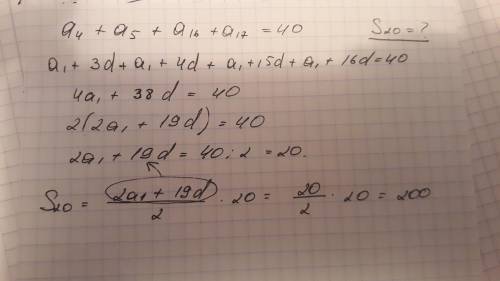 a₄ + a₅ + a₁₆ + a₁₇ = 40 S₂₀ = ?
a₁ + 3d + a₁ + 4d + a₁ + 15d + a₁ + 16d = 40
4a₁ + 38d = 40
2(2a₁ + 19d) = 40
2a₁ + 19d = 40 : 2 = 20.
S₂₀ = (2a₁ + 19d)/2 · 20 = 20/2 · 20 = 200